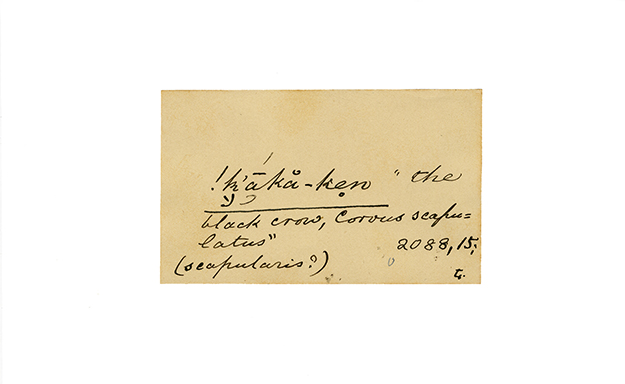 !k̔ā́kå-kẹn "the
black crow, Corvus scapu=
latus" 2088, 15;
(scapularis?) t.